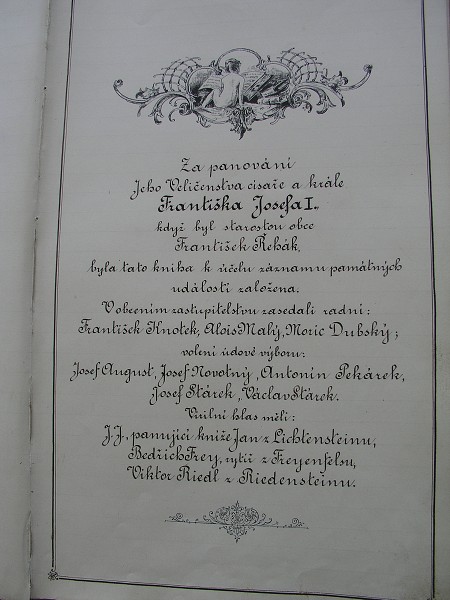 Za panování
Jeho Veličenstva císaře a krále
Františka Josefa I.,
když byl starostou obce
František Řehák,
byla tato kniha k účelu záznamu památných
událostí založena.
V obecním zastupitelstvu zasedali radní:
František Knotek, Alois Malý, Moric Dubský;
volení údové výboru:
Josef August, Josef Novotný, Antonín Pekárek,
Josef Stárek, Václav Stárek.
Virilní hlas měli:
J. J., panující kníže Jan z Lichtensteinu,
Bedřich Frey, rytíř z Freyenfelsu,
Viktor Riedl z Riedensteinu.